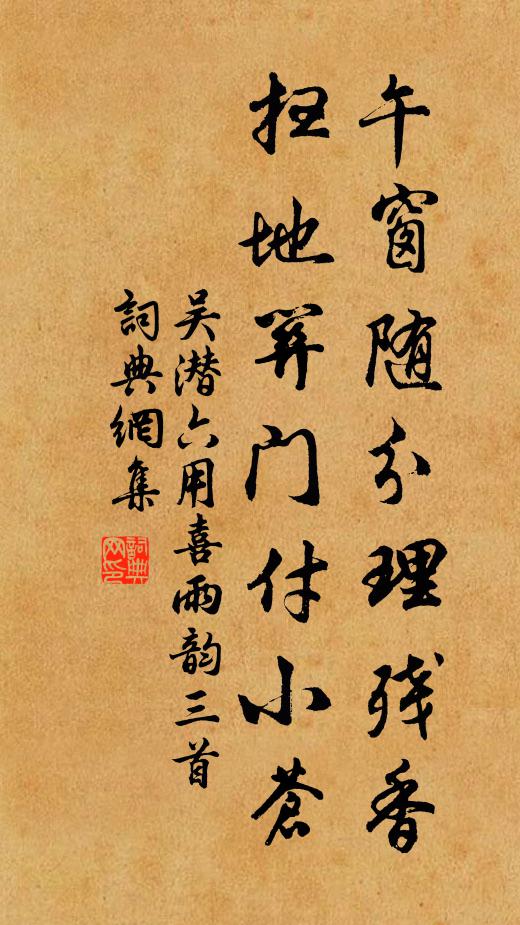 午窗随分理残香
扫地開门付小蒼
吴潜六用喜雨韵三首
詞典網集
詞典网印